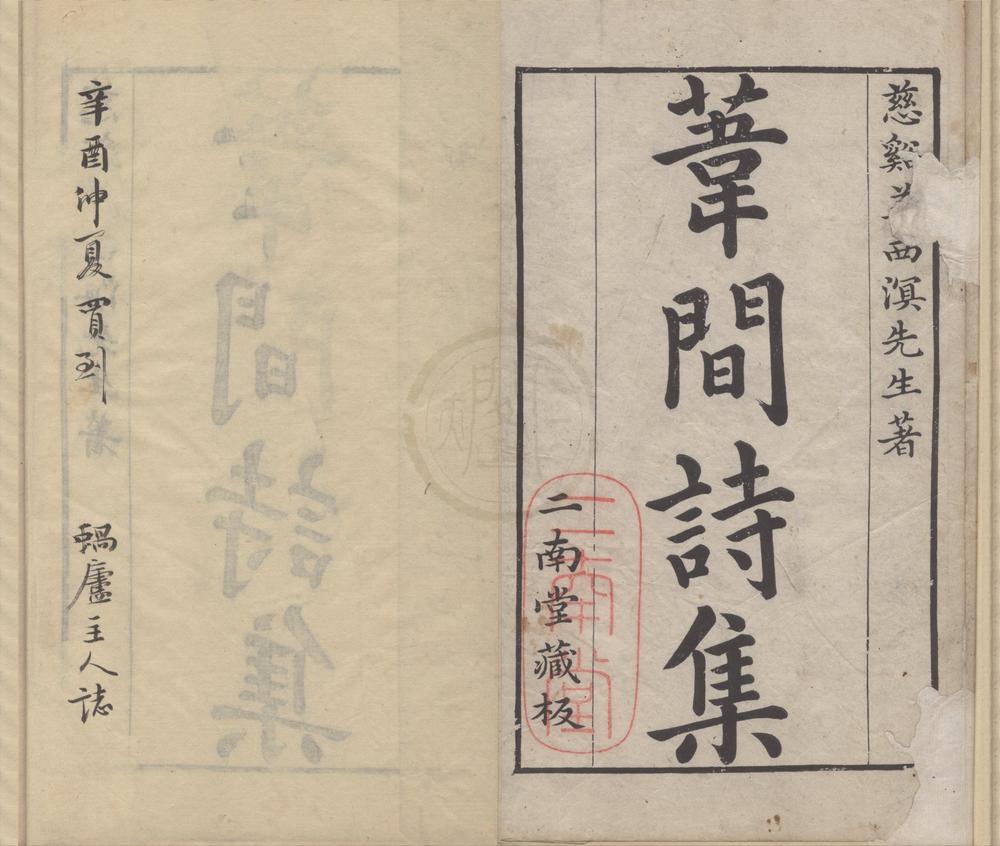 慈谿姜西溟先生著
葦間詩集
二南堂藏板
二南堂
辛酉仲夏買到
蝸廬主人誌